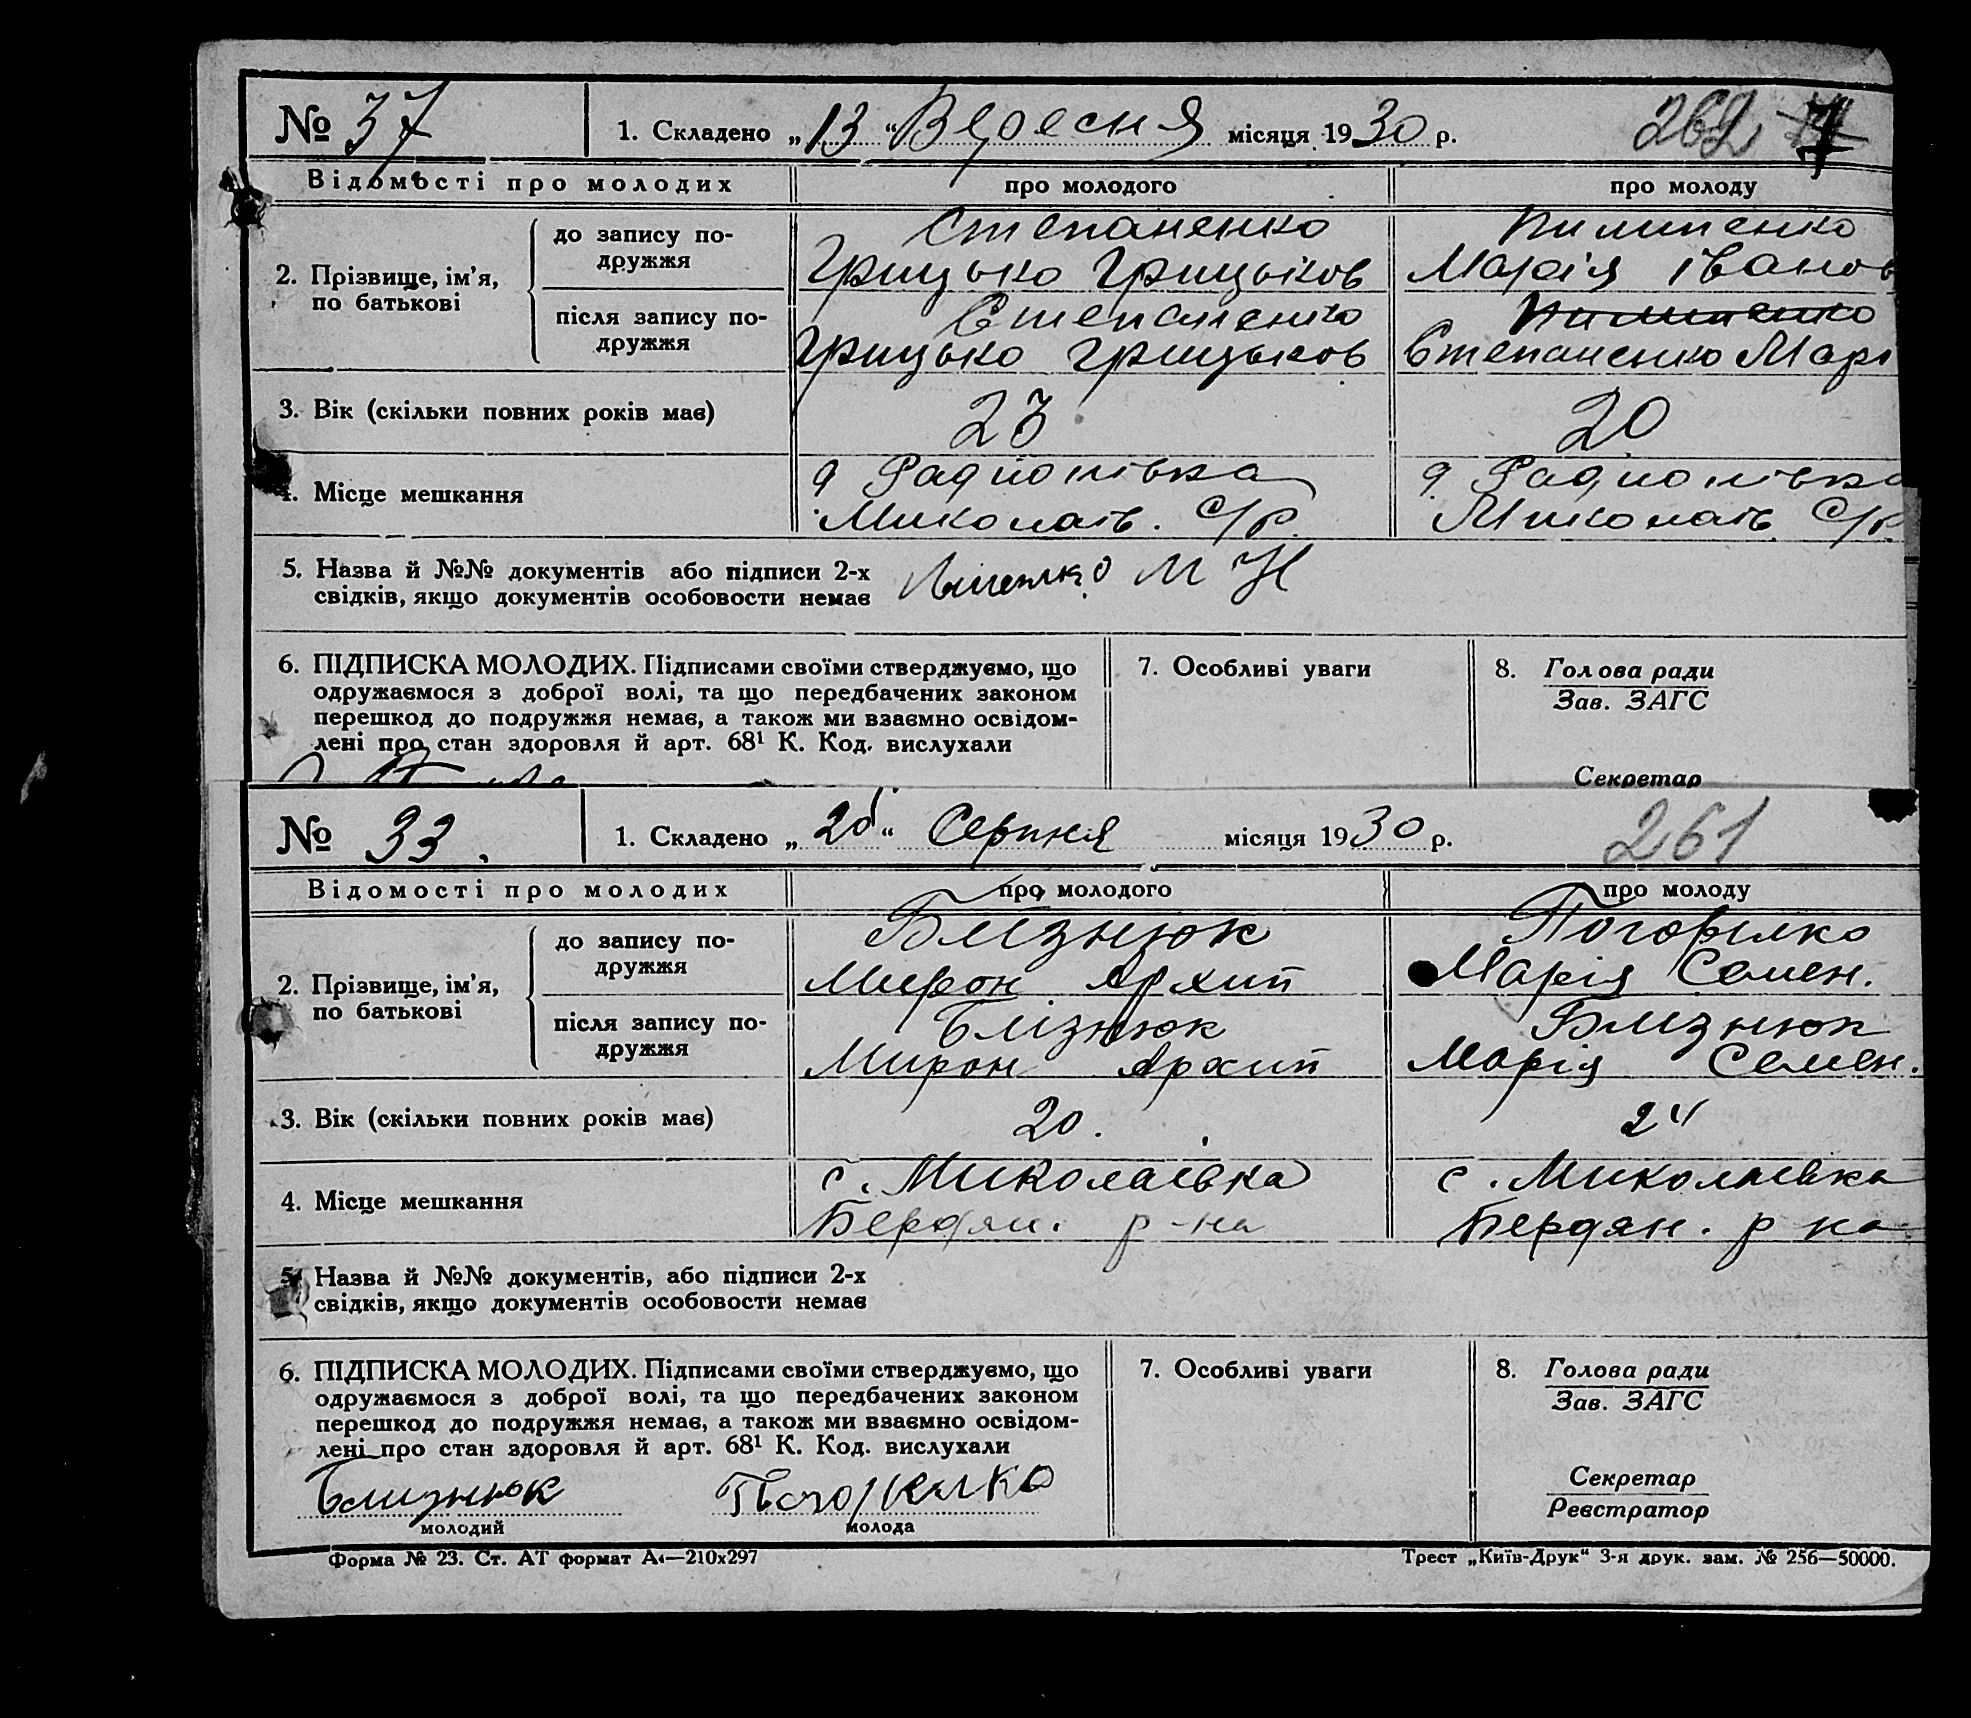 № 37
1. Складено „13“ Вересня місяця 1930 р.
262
Відомості про молодих
про молодого
про молоду
2. Прізвище, ім’я, по батькові
до запису подружжя
Степаненко
Грицько Грицьков
Пилипенко
Марія Іванов
після запису подружжя
Степаненко
Грицько Грицьков
Пилипенко
Степаненко Марі
3. Вік (скільки повних років має)
23
20
4. Місце мешкання
д Радионівка
Миколаїв. С/р.
д Радионівка
Миколаїв. С/р.
5. Назва й №№ документів або підписи 2-х
свідків, якщо документів особовости немає
М Н
6. ПІДПИСКА МОЛОДИХ. Підписами своїми стверджуємо, що
одружаємося з доброї волі, та що передбачених законом
перешкод до подружжя немає, а також ми взаємно освідом-
лені про стан здоровля й арт. 68¹ К. Код. вислухали
7. Особливі уваги
8. Голова ради
Зав. ЗАГС
Секретар
№ 33.
1. Складено „ “ Серпня місяця 1930 р.
261
Відомості про молодих
про молодого
про молоду
2. Прізвище, ім’я, по батькові
до запису подружжя
Близнюк
Мирон Архип
Поговилко
Марія Семен.
після запису подружжя
Близнюк
Мирон Архип
Близнюк
Марія Семен.
3. Вік (скільки повних років має)
20.
24
4. Місце мешкання
с. Миколаївка
Бердян. р-на
с. Миколаївка
Бердян. р на
5. Назва й №№ документів, або підписи 2-х
свідків, якщо документів особовости немає
6. ПІДПИСКА МОЛОДИХ. Підписами своїми стверджуємо, що
одружаємося з доброї волі, та що передбачених законом
перешкод до подружжя немає, а також ми взаємно освідом-
лені про стан здоровля й арт. 68¹ К. Код. вислухали
Близнюк
молодий
молода
7. Особливі уваги
8. Голова ради
Зав. ЗАГС
Секретар
Реєстратор
Форма № 23. Ст. АТ формат А4—210х297
Трест „Київ-Друк“ 3-я друк. зам. № 256—50000.